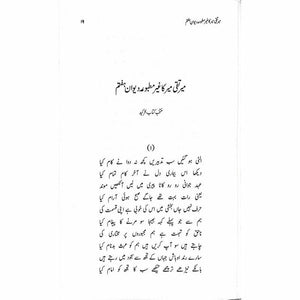 میر تقی میر کا غیر مطبوعہ دیوانِ ہفتم
۱۹
میر تقی میر کا غیر مطبوعہ دیوانِ ہفتم
(۱)
الٹی ہو گئیں سب تدبیریں کچھ نہ دوا نے کام کیا
اس بیماری دل نے آخر کام تمام کیا
عہد جوانی رو رو کاٹا پیری میں لیں آنکھیں موند
یعنی رات بہت تھے جاگے صبح ہوئی آرام کیا
حرف نہیں جاں بخشی میں اس کی خوبی اپنی قسمت کی
ہم سے جو پہلے کہہ بھیجا سو مرنے کا پیغام کیا
ناحق ہم مجبوروں پر تہمت ہے مختاری کی
چاہتے ہیں سو آپ کریں ہیں ہم کو عبث بدنام کیا
سارے رند اوباش جہاں کے تجھ سے سجود میں رہتے ہیں
بانکے ٹیڑھے ترچھے تیکھے سب کا تجھ کو امام کیا